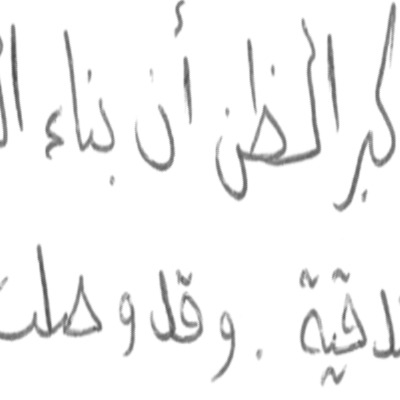 كبر الظن أن بناء ال
دقية . وقد وصلت